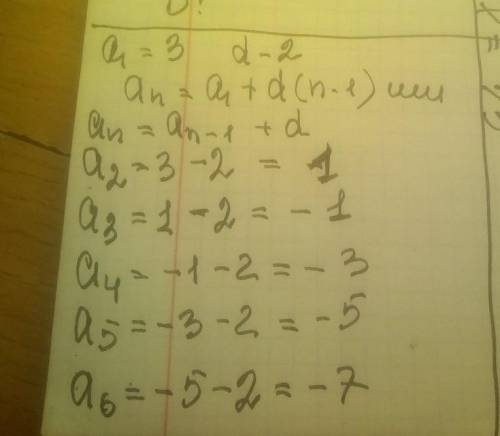 a₁ = 3 d - 2
aₙ = a₁ + d(n-1) или
aₙ = aₙ₋₁ + d
a₂ = 3 - 2 = 1
a₃ = 1 - 2 = - 1
a₄ = -1 - 2 = - 3
a₅ = -3 - 2 = -5
a₆ = -5 - 2 = -7